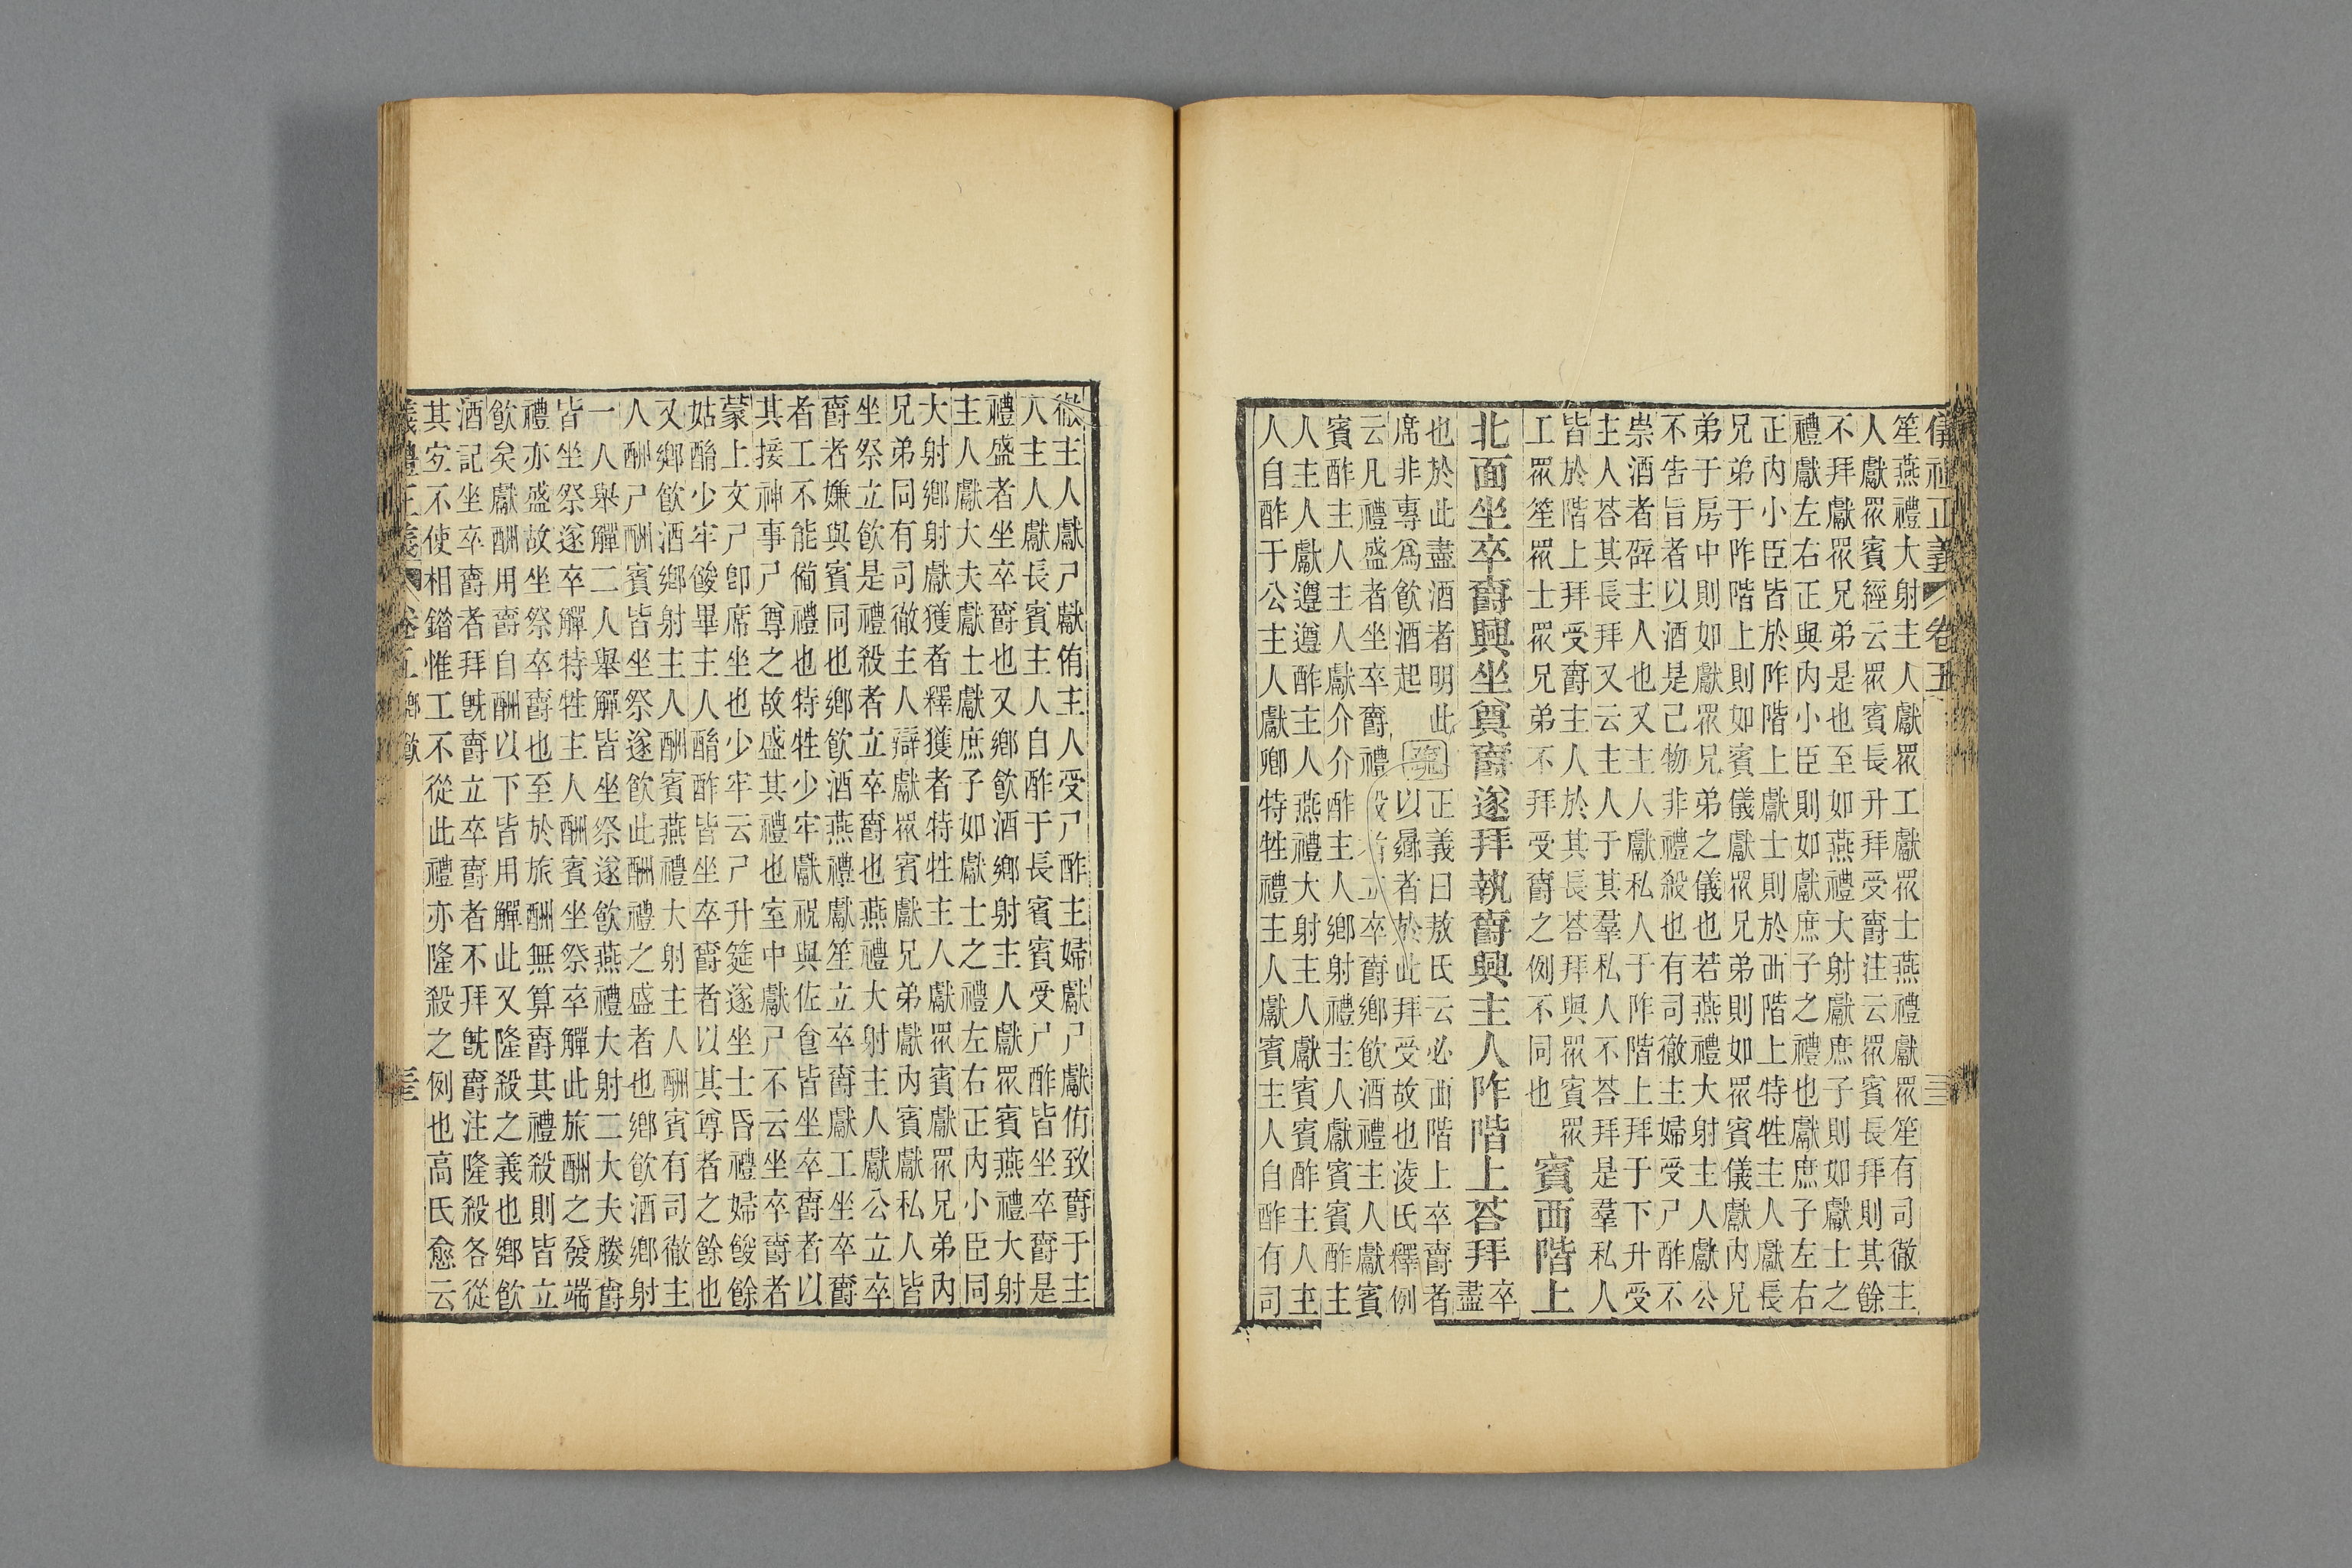 儀禮正義 卷五
笙燕禮大射主人獻眾工獻眾士燕禮獻眾笙有司徹主
人獻眾賓經云眾賓長升拜受爵注云眾賓長拜則其餘
不拜獻眾兄弟是也至如燕禮大射獻庶子則如獻士之
禮獻左右正與內小臣則如獻庶子之禮也獻庶子左右
正內小臣皆於阼階上獻士則於西階上特牲主人獻長
兄弟于阼階上則如賓儀獻眾兄弟則如眾賓儀獻內兄
弟于房中則如獻眾兄弟之儀也若燕禮大射主人獻公
不告旨者以酒是己物非禮殺也有司徹主婦受尸酢不
崇酒者辟主人也又主人獻私人于阼階上拜于下升受
主人荅其長拜又云主人于其羣私人不荅拜是羣私人
皆於階上拜受爵主人於其長荅拜與眾賓眾
工眾笙眾士眾兄弟不拜受爵之例不同也
賓西階上
北面坐卒爵興坐奠爵遂拜執爵興主人阼階上荅拜 卒盡
也於此盡酒者明此
席非專為飲酒起
疏
正義曰敖氏云必西階上卒爵者
以歸者於此拜受故也淩氏釋例
云凡禮盛者坐卒爵禮殺者立卒爵鄉飲酒禮主人獻賓
賓酢主人主人獻介介酢主人鄉射禮主人獻賓賓酢主
人主人獻遵遵酢主人燕禮大射主人獻賓賓酢主人主
人自酢于公主人獻卿特牲禮主人獻賓主人自酢有司
徹主人獻尸獻侑主人受尸酢主婦獻尸獻侑致爵于主
人主人獻長賓主人自酢于長賓賓受尸酢皆坐卒爵是
禮盛者坐卒爵也又鄉飲酒鄉射主人獻眾賓燕禮大射
主人獻大夫獻士獻庶子如獻士之禮左右正內小臣同
大射鄉射獻獲者釋獲者特牲主人獻眾賓獻眾兄弟內
兄弟同有司徹主人辯獻眾賓獻兄弟獻內賓獻私人皆
坐祭立飲是禮殺者立卒爵也燕禮大射主人獻公立卒
爵者嫌與賓同也鄉飲酒燕禮獻笙立卒爵獻工坐卒爵
者工不能備禮也特牲少牢獻祝與佐食皆坐卒爵者以
其接神事尸尊之故盛其禮也室中獻尸不云坐卒爵者
蒙上文尸即席坐也少牢云尸升筵遂坐士昏禮婦餕餘
姑酳少牢餕畢主人酳酢皆坐卒爵者以其尊者之餘也
又鄉飲酒鄉射主人酬賓燕禮大射主人酬賓有司徹主
人酬尸酬賓皆坐祭遂飲此酬禮之盛者也鄉飲酒鄉射
一人舉觶二人舉觶皆坐祭遂飲燕禮大射二大夫媵爵
皆坐祭遂卒觶特牲主人酬賓坐祭卒觶此旅酬之發端
禮亦盛故坐祭卒爵也至於旅酬無算爵其禮殺則皆立
飲矣獻酬用爵自酬以下皆用觶此又隆殺之義也鄉飲
酒記坐卒爵者拜既爵立卒爵者不拜既爵注隆殺各從
其宜不使相錯惟工不從此禮亦隆殺之例也高氏愈云
儀禮正義 卷五 鄉飲